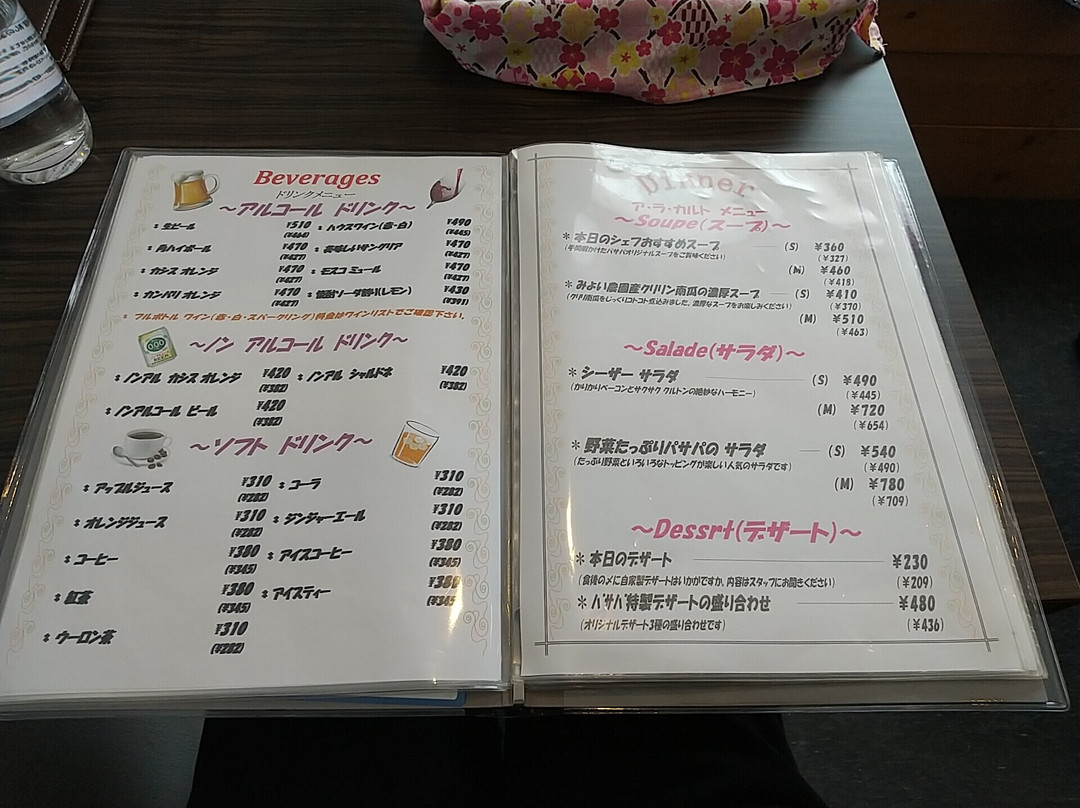 Beverages
ドリンクメニュー
～アルコール ドリンク～
生ビール ¥510 (¥464)
ハウスワイン(赤・白) ¥490 (¥445)
角ハイボール ¥470 (¥427)
美味しいサングリア ¥470 (¥427)
カシス オレンジ ¥470 (¥427)
モスコ ミュール ¥470 (¥427)
カンパリ オレンジ ¥470 (¥427)
焼酎ソーダ割り(レモン) ¥430 (¥391)
フルボトル ワイン(赤・白・スパークリング)料金はワインリストでご確認下さい。
～ノン アルコール ドリンク～
ノンアル カシス オレンジ ¥420 (¥382)
ノンアル シャルドネ ¥420 (¥382)
ノンアルコール ビール ¥420 (¥382)
～ソフト ドリンク～
アップルジュース ¥310 (¥282)
コーラ ¥310 (¥282)
オレンジジュース ¥310 (¥282)
ジンジャーエール ¥310 (¥282)
コーヒー ¥380 (¥345)
アイスコーヒー ¥380 (¥345)
紅茶 ¥380 (¥345)
アイスティー ¥380 (¥345
ウーロン茶 ¥310 (¥282)
Dinner
ア・ラ・カルト メニュー
～Soupe(スープ)～
＊本日のシェフおすすめスープ (S) ¥360
(手間暇かけたパサパオリジナルスープをご賞味ください) (¥327)
(M) ¥460
(¥418)
＊みよい農園産クリリン南瓜の濃厚スープ (S) ¥410
(クリリン南瓜をじっくりコトコト煮込みました、濃厚なスープをお楽しみください) (¥370)
(M) ¥510
(¥463)
～Salade(サラダ)～
＊シーザー サラダ (S) ¥490
(かりかりベーコンとサクサク クルトンの絶妙なハーモニー) (¥445)
(M) ¥720
(¥654)
＊野菜たっぷりパサパの サラダ (S) ¥540
(たっぷり野菜といろいろなトッピングが楽しい人気のサラダです) (¥490)
(M) ¥780
(¥709)
～Dessrt(デザート)～
＊本日のデザート ¥230
(食後の〆に自家製デザートはいかがですか、内容はスタッフにお聞きください) (¥209)
＊パサパ特製デザートの盛り合わせ ¥480
(オリジナルデザート3種の盛り合わせです) (¥436)